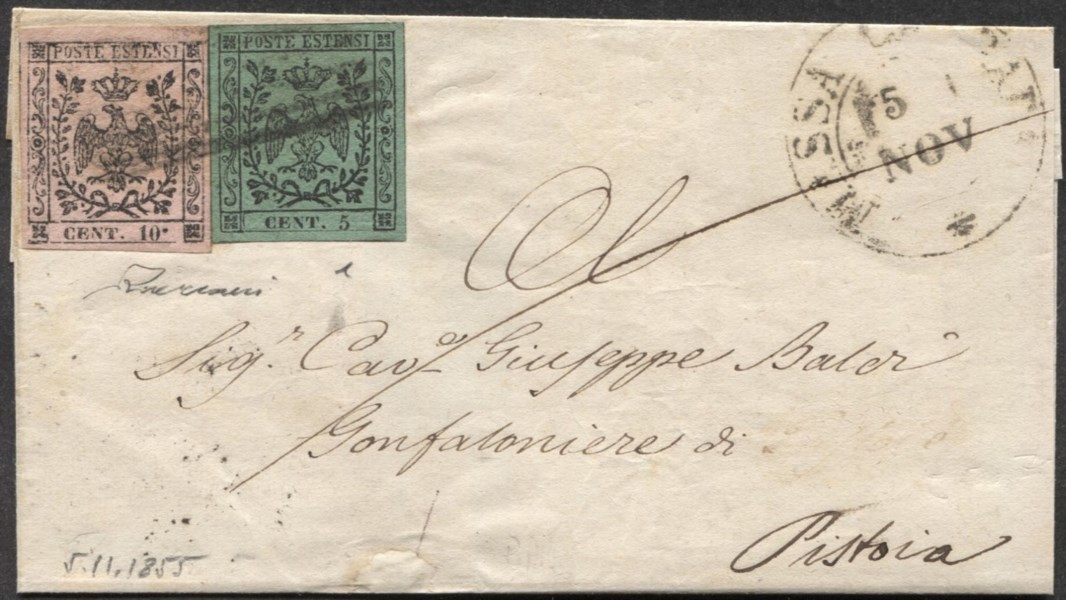 POSTE ESTENSI
CENT. 10.
POSTE ESTENSI
CENT. 5
MASSA
5
NOV
Al
Sig.r Cav.e Giuseppe Baldi
Gonfaloniere di
Pistoia
5.11.1855